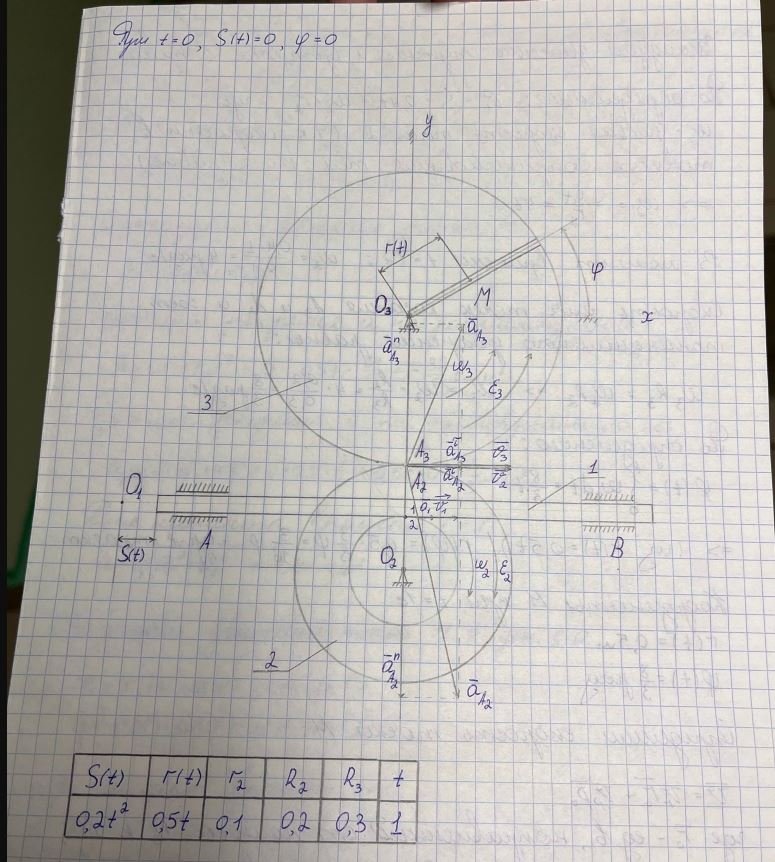 При t=0, S(t)=0, φ=0
y
r(t)
φ
O₃
M
x
ā_A₃
āⁿ_A₃
ω₃
ε₃
3
A₃
ā^τ_A₃
v̄₃
A₂
ā^τ_A₂
v̄₂
1
O₁
1
2
a₁
v̄₁
S(t)
A
B
O₂
ω₂
ε₂
2
āⁿ_A₂
ā_A₂
S(t) r(t) r₂ R₂ R₃ t
0,2t² 0,5t 0,1 0,2 0,3 1